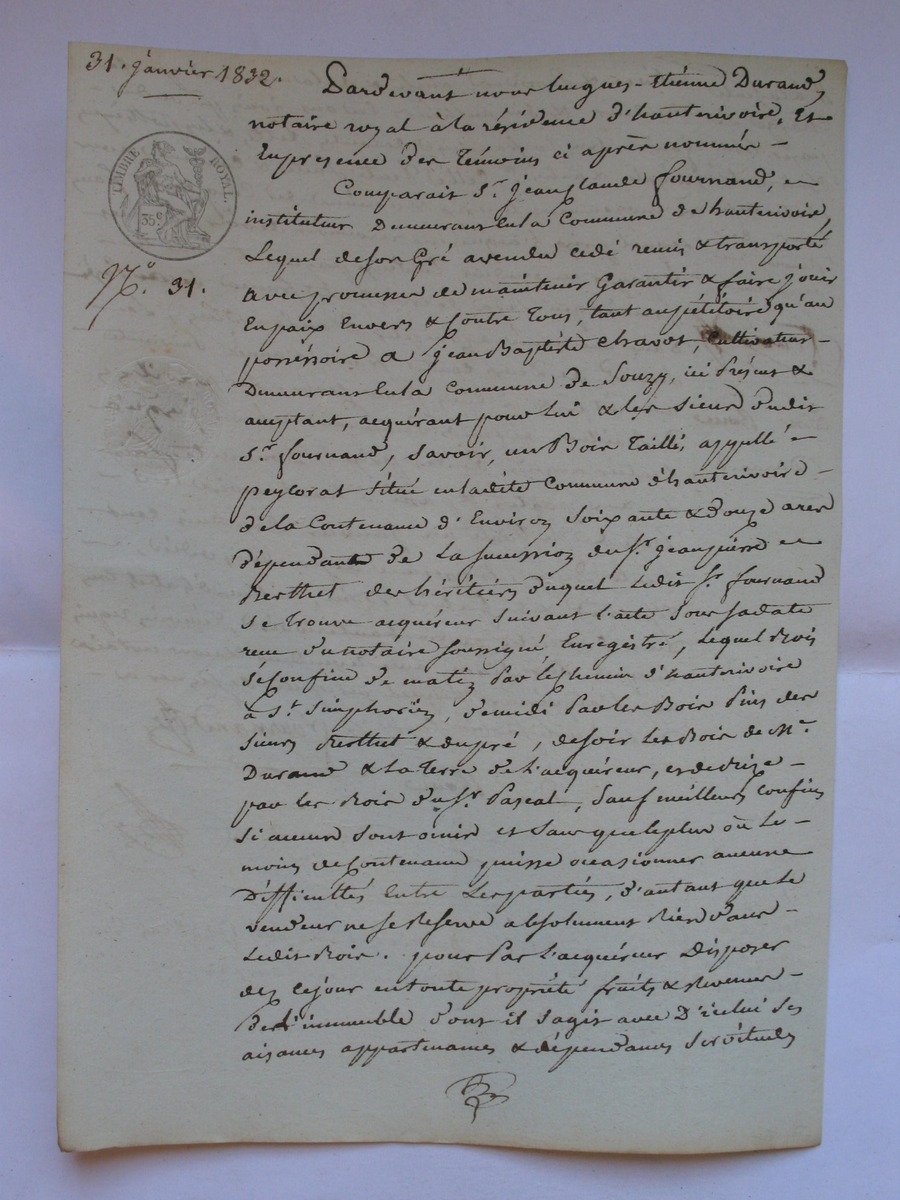 31. janvier 1832.
Pardevant nous hugues-étienne Durand,
notaire royal à la résidence d'hauterivoire, Et
En presence des Témoins ci après nommés -
TIMBRE ROYAL.
35 c.
N.º 31.
Comparait Sr. jean claude fournand,
instituteur Demeurant En la Commune de hauterivoire,
Lequel de son Gré a vendu cedé remis & transporté
avec promesse de maintenir Garantir & faire jouir
En paix Envers & Contre Tous, tant au pétitoire qu'au
possessoire a jean Baptiste Chavot, Cultivateur -
Demeurant En la Commune de Souzy, ici Présent &
acceptant, acquérant pour lui & les siens dudit
Sr. fournand, Savoir, un Bois Taillis appellé
peylorat Situé en ladite Commune d'hauterivoire -
de la Contenance d'Environ Soixante & douze ares
dépendante de la succession du Sr. jean pierre
Berthet des héritiers duquel Ledit Sr. fournand
se trouve acquéreur suivant l'acte sous sa date
recu du notaire soussigné, Enregistré, Lequel Bois
se Confine de matin Par le Chemin d'hauterivoire
à St. Simphorien, de midi Par les Bois Pins des
sieurs Berthet & dupré, de soir Les Bois de Mr.
Durand & la Terre de L'acquéreur, et de Bize -
par les Bois du Sr. Pascal, Sauf meilleurs Confins
si aucuns sont omis et sans que le plus où Le -
moins de Contenance puisse occasionner aucune
Difficultés entre Les parties, d'autant que Le
vendeur ne se Réserve absolument Rien dans -
Ledit Bois. pour Par L'acquéreur Disposer
dez ce jour en toute propriété fruits & Revenus -
de L'immeuble dont il s'agit avec D'icelui Ses
aisances appartenances & dépendances Servitudes